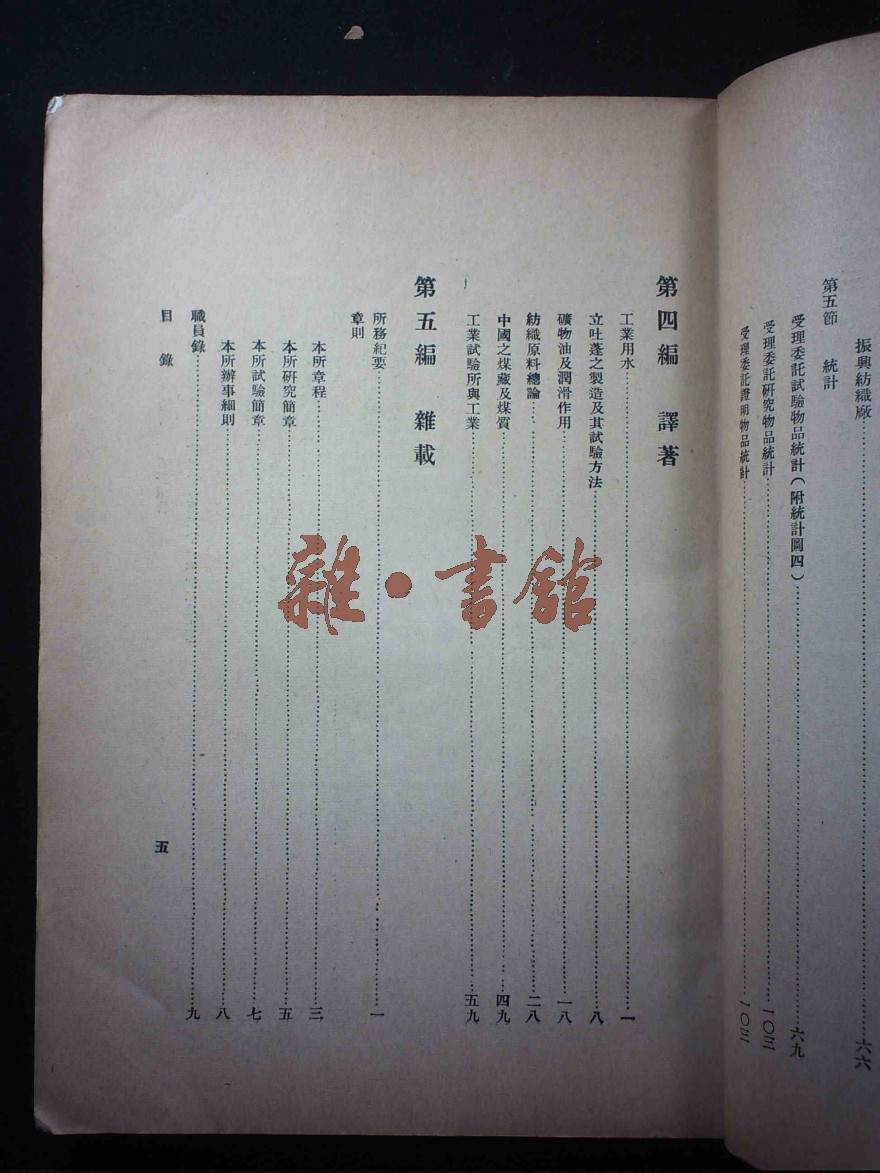 振興紡織廠……六六
第五節 統計
受理委託試驗物品統計(附統計圖四)……六九
受理委託研究物品統計……一〇三
受理委託證明物品統計……一〇三
第四編 譯著
工業用水……一
立吐蓬之製造及其試驗方法……八
礦物油及潤滑作用……一八
紡織原料總論……二八
中國之煤藏及煤質……四九
工業試驗所與工業……五九
第五編 雜載
所務紀要……一
章則
本所章程……三
本所研究簡章……五
本所試驗簡章……七
本所辦事細則……八
職員錄……九
目錄
五
雜·書館